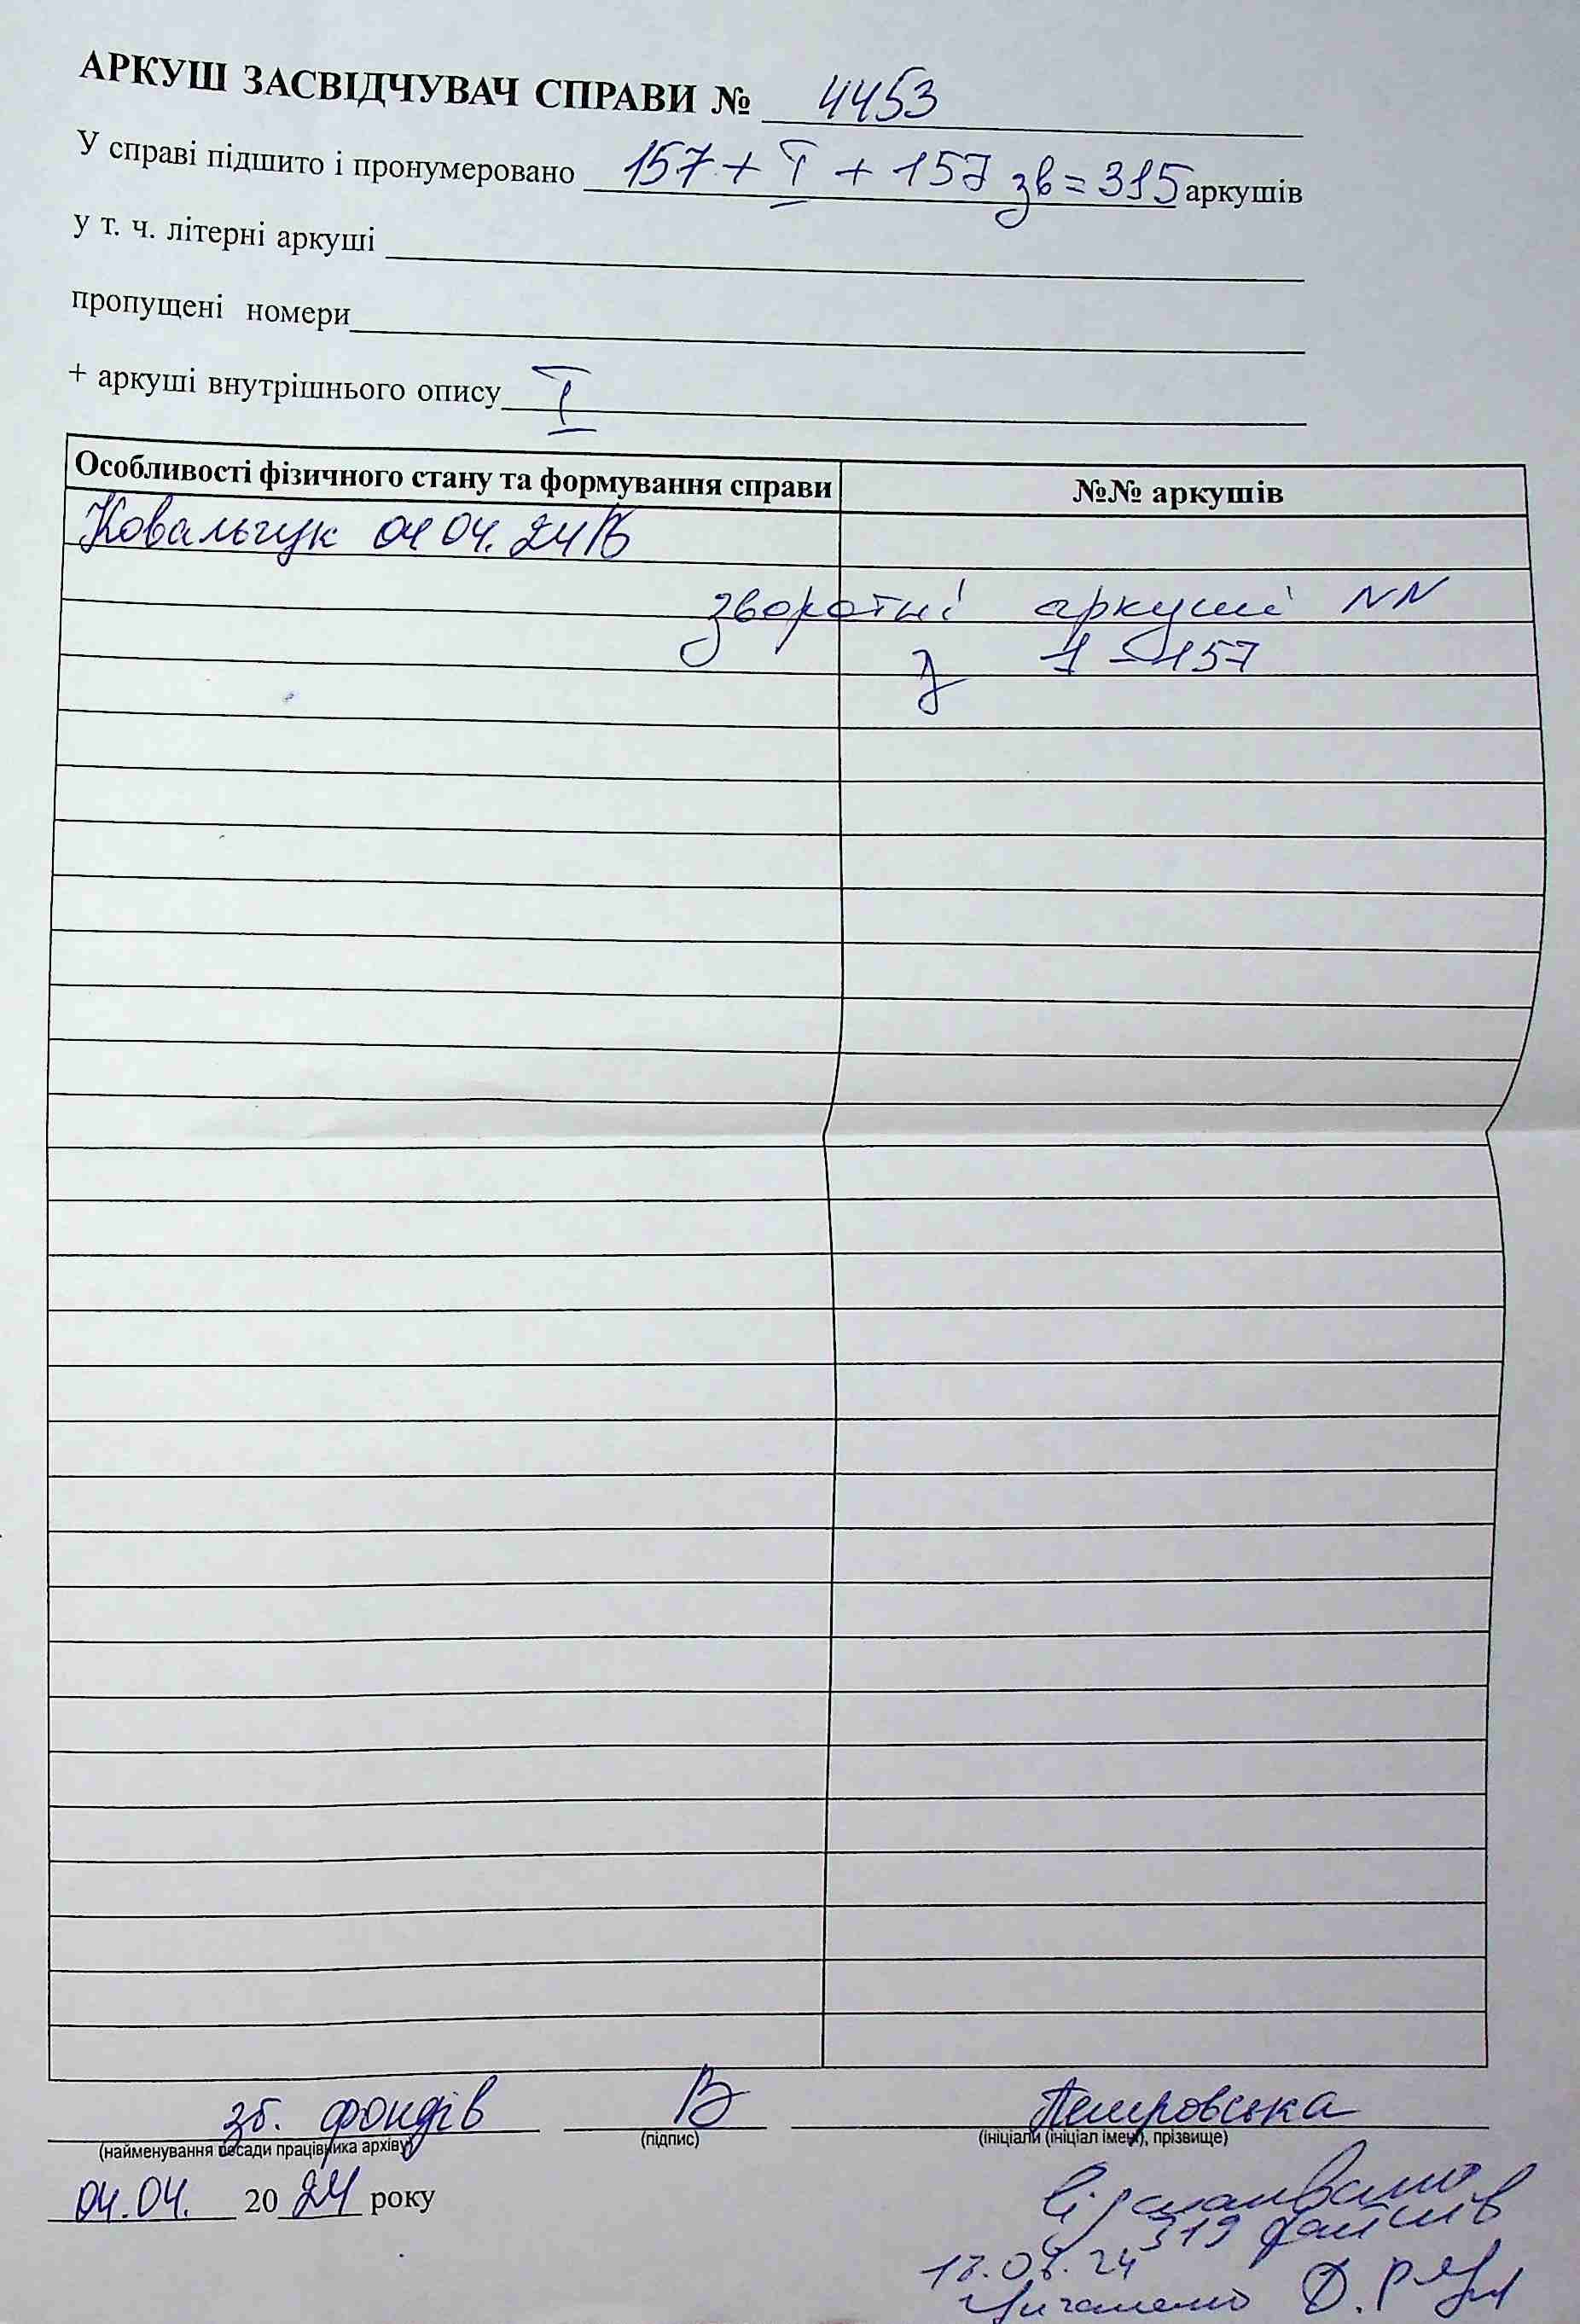 АРКУШ ЗАСВІДЧУВАЧ СПРАВИ № 4453
У справі підшито і пронумеровано 157 + I + 157 зв = 315 аркушів
у т. ч. літерні аркуші
пропущені номери
+ аркуші внутрішнього опису I
Особливості фізичного стану та формування справи №№ аркушів
Ковальчук 04 04. 24
зворотні аркуші NN
з 1 - 157
зб. фондів Петровська
(найменування посади працівника архіву) (підпис) (ініціали (ініціал імені), прізвище)
04.04. 2024 року
Відскановано
319 файлів
24